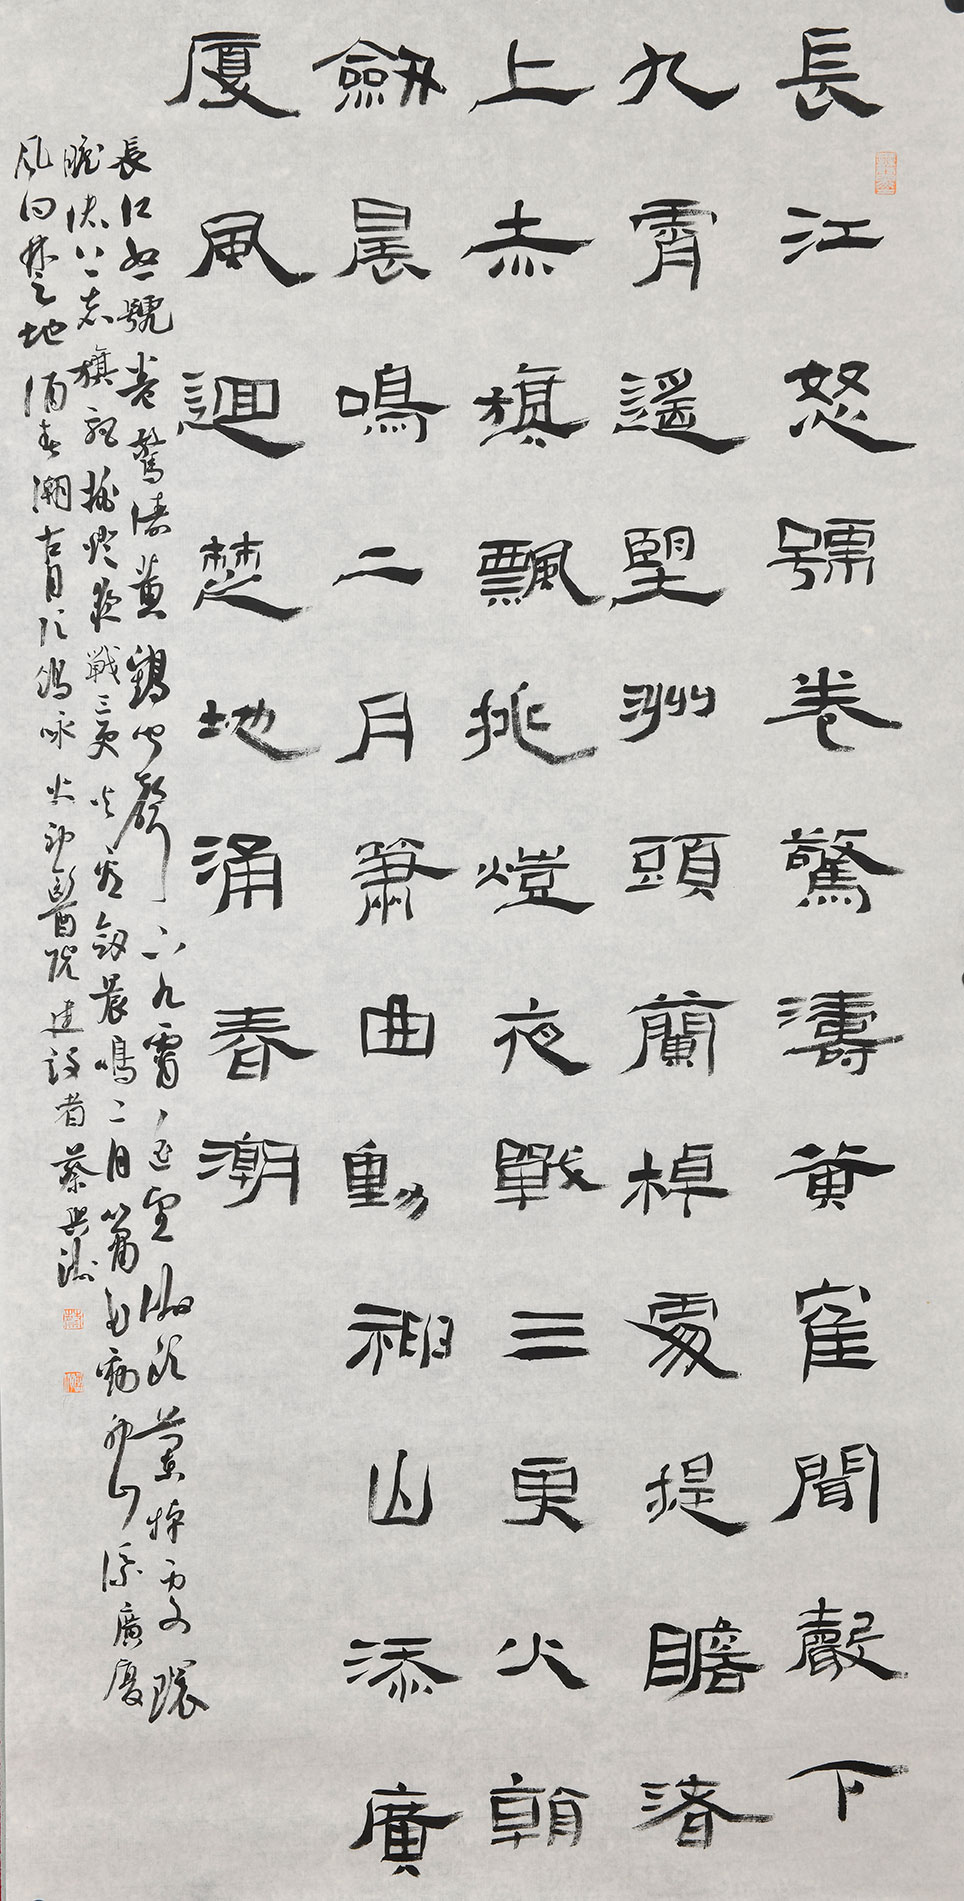 長江怒號卷驚濤黃寉聞聲下
九霄遙望洲頭蘭棹處提瞻渚
上赤旗飄挑燈夜戰三更火朝
劒晨鳴二月簫曲動神山添廣
厦風迴楚地涌春潮
長江怒號卷驚濤黃鶴聞聲下九霄遙望洲頭蘭棹處提
瞻渚上赤旗飄挑燈夜戰三更火朝劒晨鳴二月簫曲動神山添廣厦
風回楚地涌春潮 咏火神醫院建設者蔡興